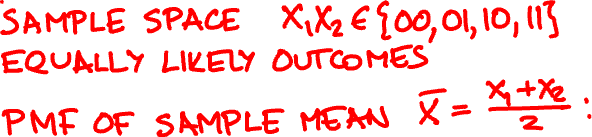 SAMPLE SPACE X₁X₂ ∈ {00, 01, 10, 11}
EQUALLY LIKELY OUTCOMES
PMF OF SAMPLE MEAN X̅ = (X₁+X₂)/2 :